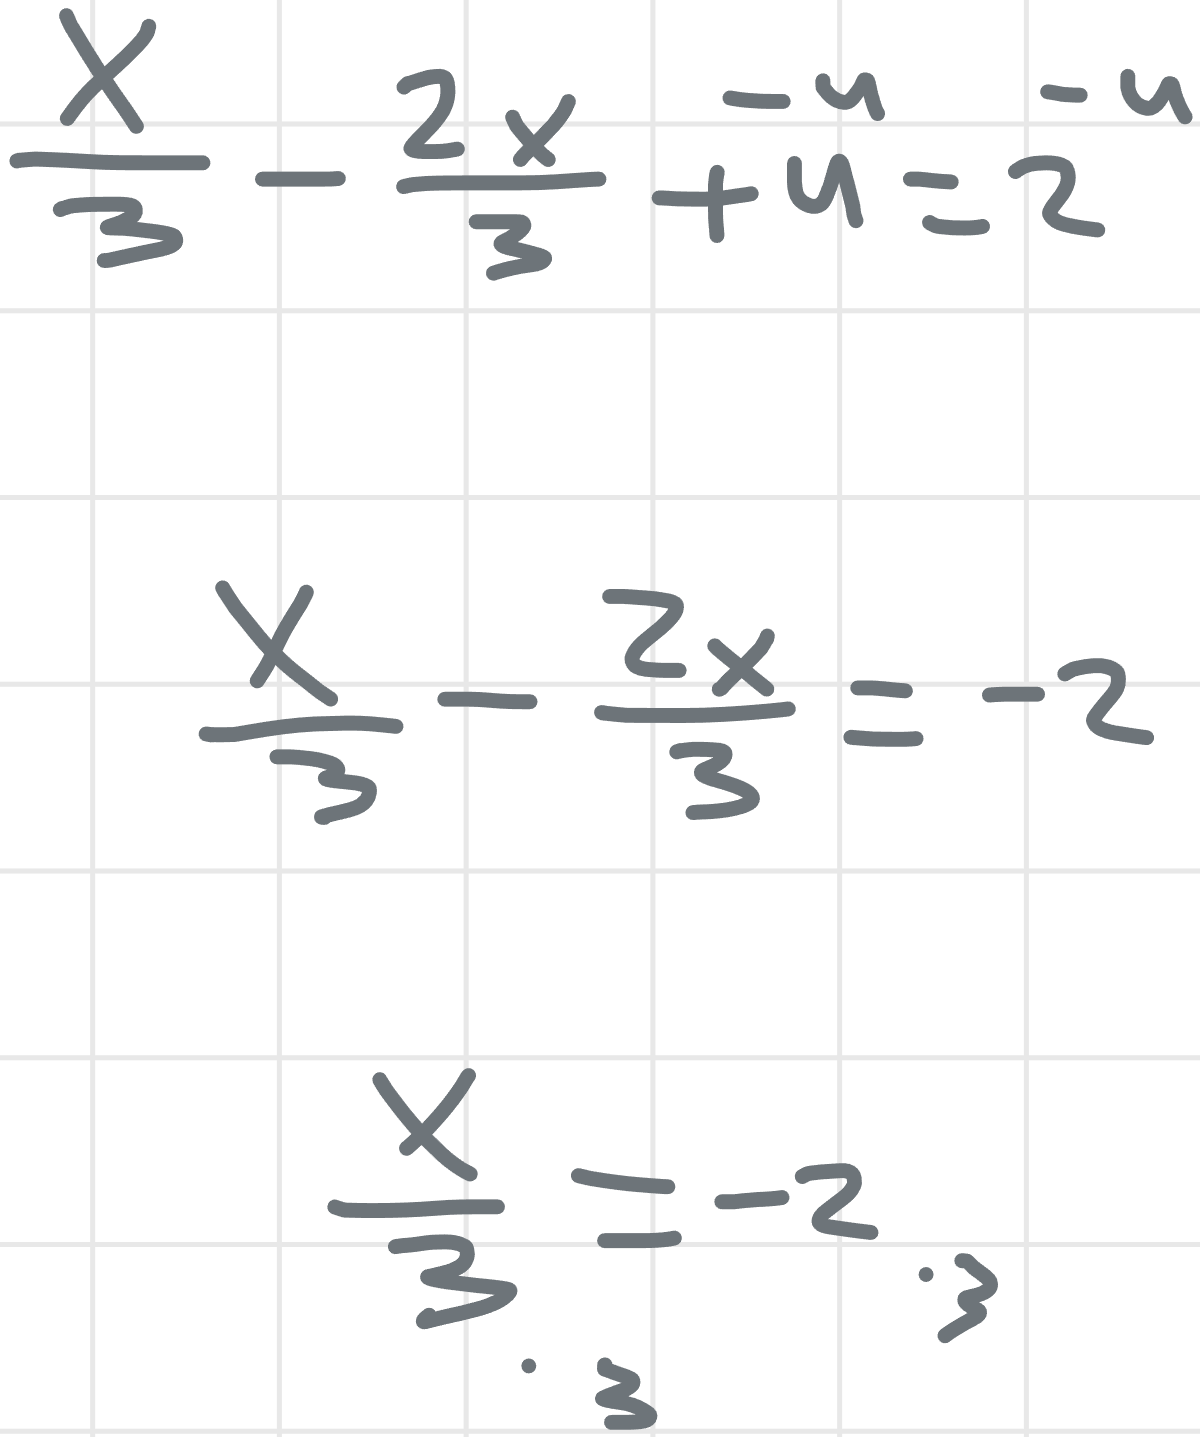 -4 -4
x/3 - 2x/3 + 4 = 2
x/3 - 2x/3 = -2
x/3 = -2
· 3 · 3